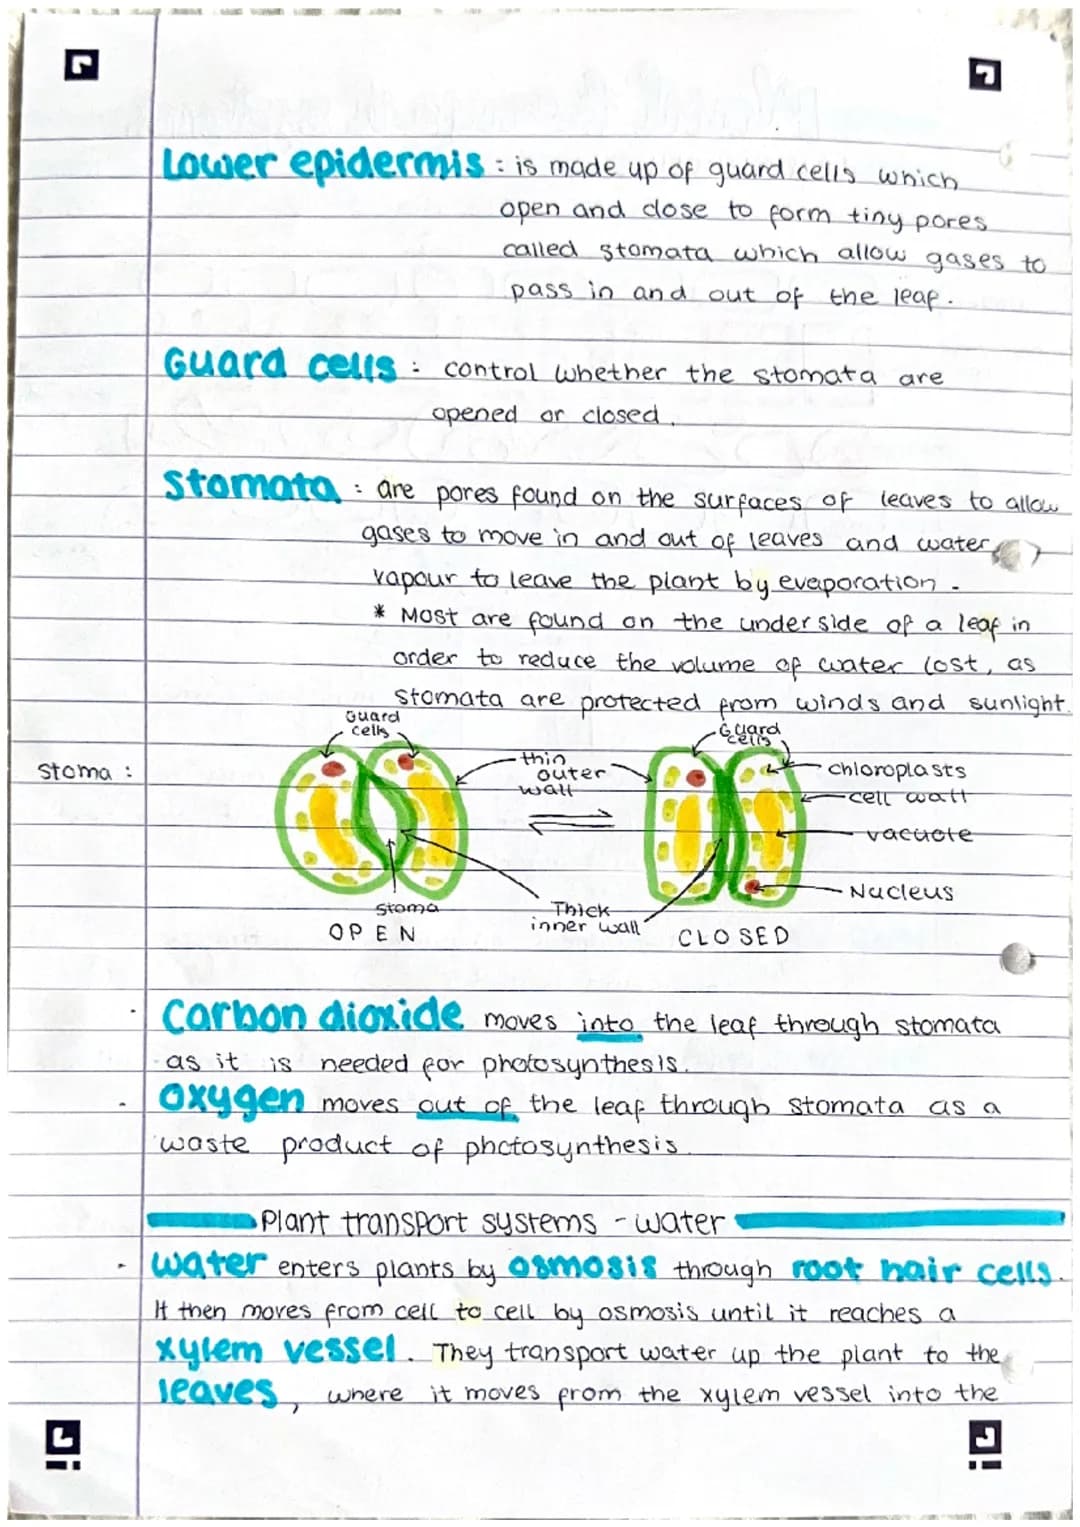 Lower epidermis : is made up of guard cells which
open and close to form tiny pores
called stomata which allow gases to
pass in and out of the leaf.
Guard cells : control whether the stomata are
opened or closed.
Stomata : are pores found on the surfaces of leaves to allow
gases to move in and out of leaves and water
vapour to leave the plant by evaporation.
* Most are found on the underside of a leaf in
order to reduce the volume of water lost, as
stomata are protected from winds and sunlight.
stoma :
Guard
cells
thin
outer
wall
Guard
cells
chloroplasts
cell wall
vacuole
Nucleus
stoma
OPEN
Thick
inner wall
CLOSED
· Carbon dioxide moves into the leaf through stomata
as it is needed for photosynthesis.
- Oxygen moves out of the leaf through stomata as a
waste product of photosynthesis.
Plant transport systems - water
- Water enters plants by osmosis through root hair cells.
It then moves from cell to cell by osmosis until it reaches a
xylem vessel. They transport water up the plant to the
leaves, where it moves from the xylem vessel into the